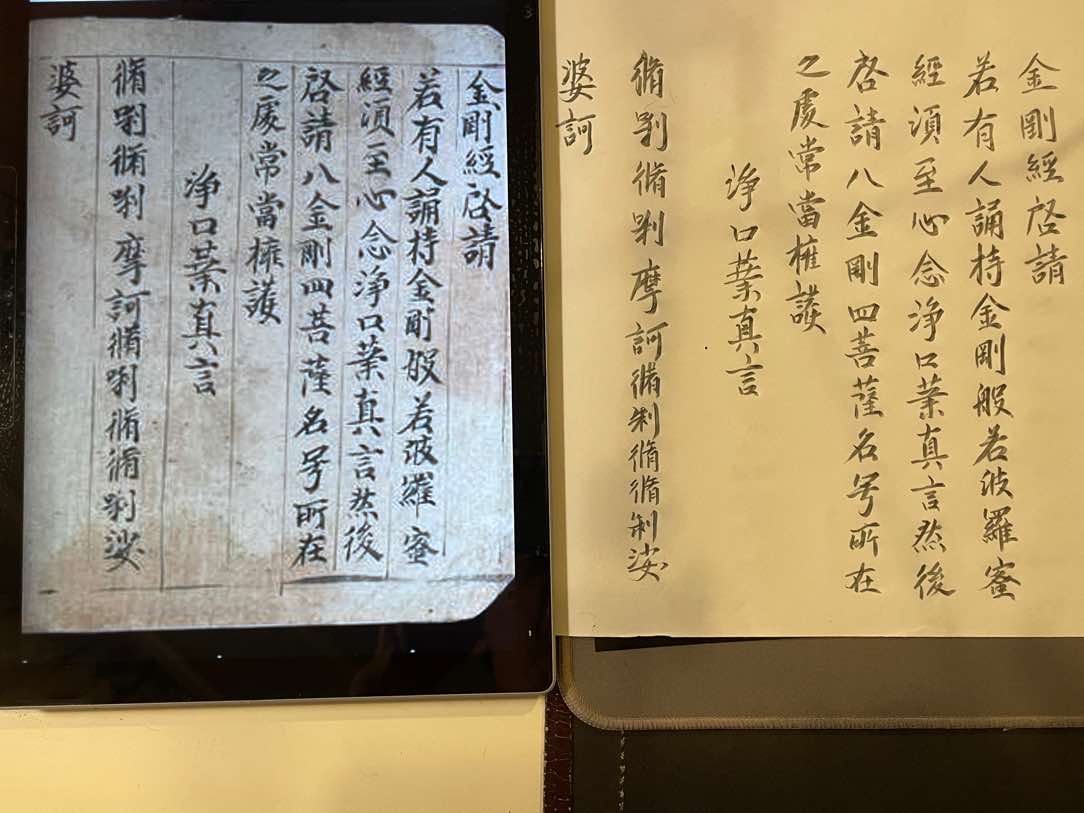 金剛經啓請
若有人誦持金剛般若波羅蜜
經須至心念淨口業真言然後
啓請八金剛四菩薩名号所在
之處常當擁護
淨口業真言
脩唎脩唎摩訶脩唎脩脩唎娑
婆訶
金剛經啓請
若有人誦持金剛般若波羅蜜
經須至心念淨口業真言然後
啓請八金剛四菩薩名号所在
之處常當擁護
淨口業真言
脩唎脩唎摩訶脩唎脩脩唎娑
婆訶